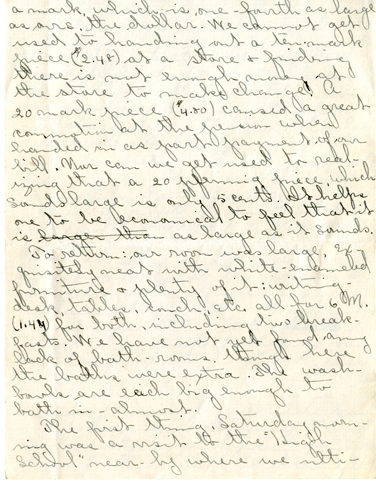 a mark, which is one-fourth as large
as are the dollar. We cannot get
used to handing out a ten mark
piece ($2.48) at a store & finding
there is not enough money at
the store to make change! A
20 mark piece ($4.80) caused a great
commotion at the pension when
handed in as part payment of our
bill. Nor can we get used to real-
izing that a 20 pfennig piece, which
sounds large is only 5 cents. It helps
one to be economical to feel that it
is larger than as large as it sounds.
To return: our room was large, ex-
quisitely neat with white-enameled
furniture & plenty of it: writing
desk, tables, couch, etc. all for 6 M.
(1.44) for both, including two break-
fasts. We have not yet found any
lack of bath-rooms, though here
the baths were extra. The wash-
bowls are each big enough to
bathe in - almost.
The first thing, Saturday morn-
ing was a visit to the "High
School" near-by where we ulti-